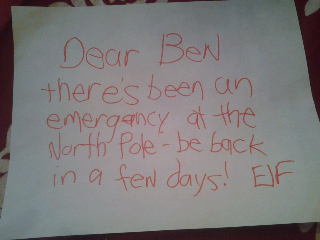 Dear Ben
there's been an
emergency at the
North Pole - be back
in a few days! Elf